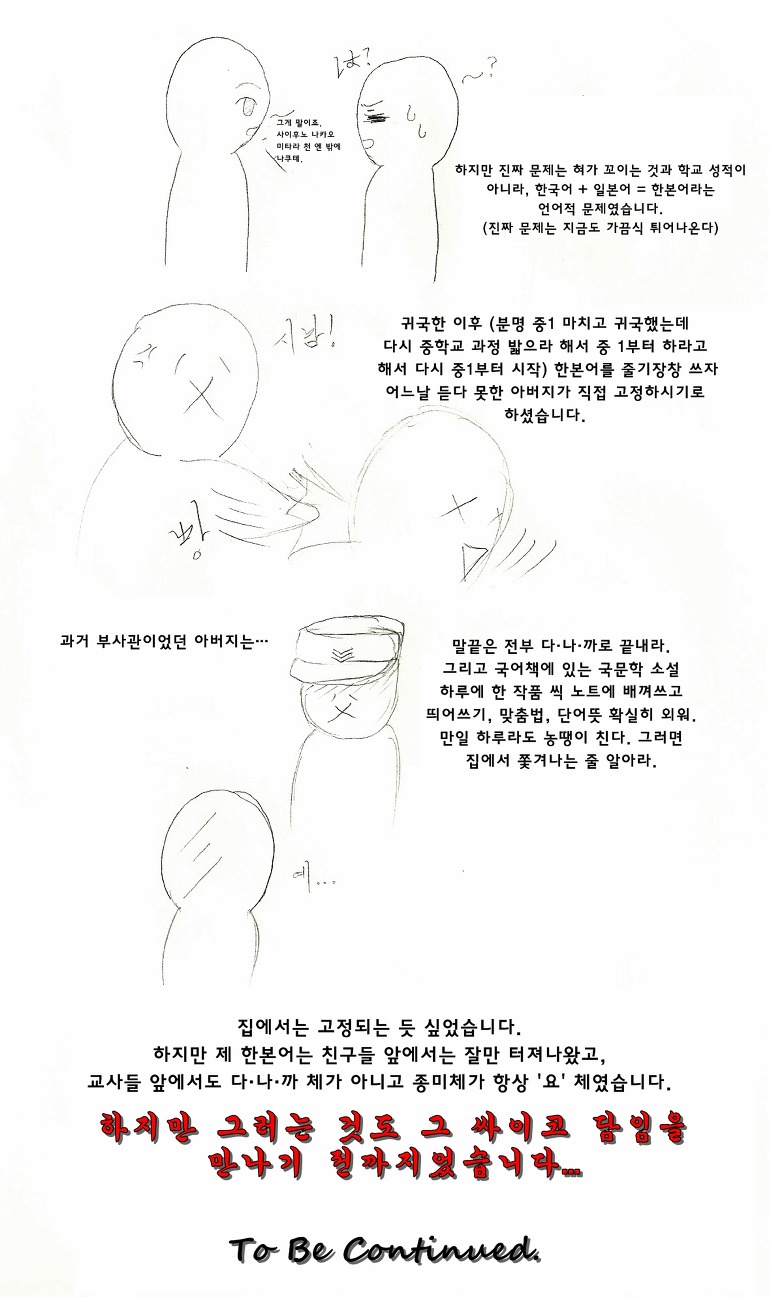 그게 말이죠.
사이후노 나카오
미타라 천 엔 밖에
나쿠테.
~?
하지만 진짜 문제는 혀가 꼬이는 것과 학교 성적이
아니라, 한국어 + 일본어 = 한본어라는
언어적 문제였습니다.
(진짜 문제는 지금도 가끔식 튀어나온다)
시밤!
귀국한 이후 (분명 중1 마치고 귀국했는데
다시 중학교 과정 밟으라 해서 중 1부터 하라고
해서 다시 중1부터 시작) 한본어를 줄기장창 쓰자
어느날 듣다 못한 아버지가 직접 고정하시기로
하셨습니다.
빵
과거 부사관이었던 아버지는…
말끝은 전부 다·나·까로 끝내라.
그리고 국어책에 있는 국문학 소설
하루에 한 작품 씩 노트에 배껴쓰고
띄어쓰기, 맞춤법, 단어뜻 확실히 외워.
만일 하루라도 농땡이 친다. 그러면
집에서 쫓겨나는 줄 알아라.
예...
집에서는 고정되는 듯 싶었습니다.
하지만 제 한본어는 친구들 앞에서는 잘만 터져나왔고,
교사들 앞에서도 다·나·까 체가 아니고 종미체가 항상 '요' 체였습니다.
하지만 그러는 것도 그 싸이코 담임을
만나기 전까지였습니다...
To Be Continued.